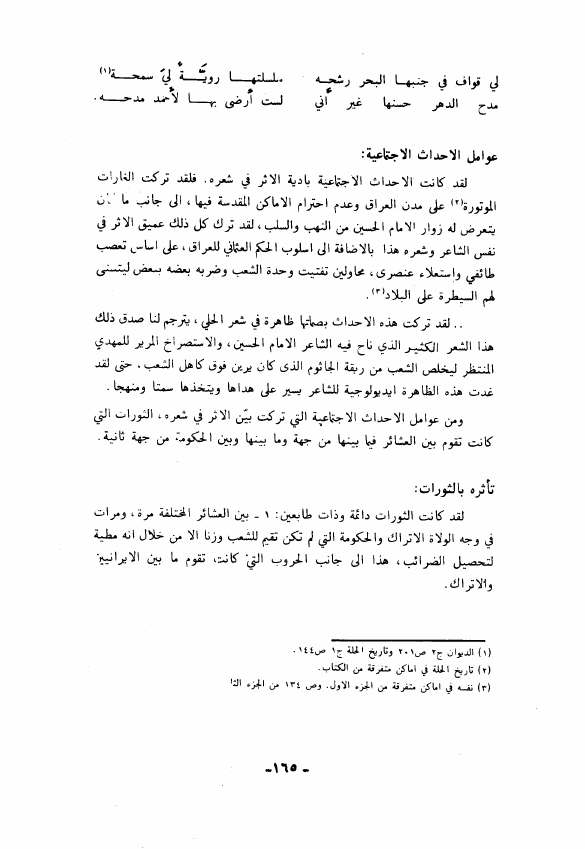 لي قواف في جنبها البحر رشحه سلسلتها رويَّةٌ ليّ سمحة(١)
مدح الدهر حسنها غير أني لست أرضى بها لأحمد مدحه.
عوامل الاحداث الاجتماعية:
لقد كانت الاحداث الاجتماعية بادية الاثر في شعره. فلقد تركت الغارات
الموتورة(٢) على مدن العراق وعدم احترام الاماكن المقدسة فيها، الى جانب ما كان
يتعرض له زوار الامام الحسين من النهب والسلب، لقد ترك كل ذلك عميق الاثر في
نفس الشاعر وشعره هذا بالاضافة الى اسلوب الحكم العثماني للعراق، على اساس تعصب
طائفي واستعلاء عنصرى، محاولين تفتيت وحدة الشعب وضربه بعضه ببعض ليتسنى
لهم السيطرة على البلاد(٣).
.. لقد تركت هذه الاحداث بصماتها ظاهرة في شعر الحلي، يترجم لنا صدق ذلك
هذا الشعر الكثير الذي ناح فيه الشاعر الامام الحسين، والاستصراخ المرير للمهدي
المنتظر ليخلص الشعب من ربقة الجاثوم الذى كان يرين فوق كاهل الشعب. حتى لقد
غدت هذه الظاهرة ايديولوجية للشاعر يسير على هداها ويتخذها سمتا ومنهجا.
ومن عوامل الاحداث الاجتماعية التي تركت بيّن الاثر في شعره، الثورات التي
كانت تقوم بين العشائر فيما بينها من جهة وما بينها وبين الحكومة من جهة ثانية.
تأثره بالثورات:
لقد كانت الثورات دائمة وذات طابعين: ١ - بين العشائر المختلفة مرة، ومرات
في وجه الولاة الاتراك والحكومة التي لم تكن تقيم للشعب وزنا الا من خلال انه مطية
لتحصيل الضرائب، هذا الى جانب الحروب التي كانت تقوم ما بين الايرانيين
والاتراك.
(١) الديوان ج٢ ص٢٠١ وتاريخ الحلة ج١ ص١٤٤.
(٢) تاريخ الحلة في اماكن متفرقة من الكتاب.
(٣) نفسه في اماكن متفرقة من الجزء الاول. وص ١٣٤ من الجزء
-١٦٥-